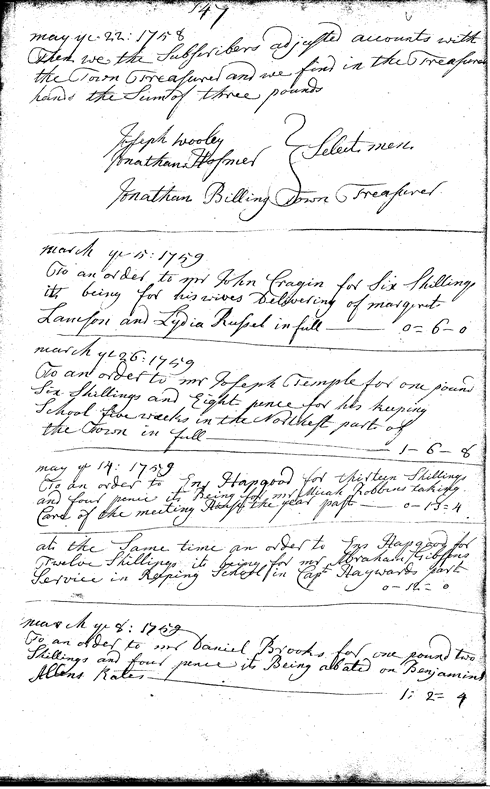 147
may ye 22: 1758
Then we the Subscribers adjusted accounts with
the Town Treasurer and we find in the Treasurers
hands the Sum of three pounds
Joseph wooley
Jonathan Hosmer } Select men
Jonathan Billing Town Treasurer
march ye 5: 1759
To an order to mr John Cragin for Six Shillings
it being for his wives Delivering of margret
Lamson and Lydia Russel in full — 0=6-0
march ye 26: 1759
To an order to mr Joseph Temple for one pound
Six Shillings and Eight pence for his keeping
School five weeks in the Northest part of
the Town in full — 1-6-8
may ye 14: 1759
To an order to Ens Hapgood for thirteen Shillings
and four pence it Being for mr Micah Robbins taking
Care of the meeting House the year past — 0-13=4
att the Same time an order to Ens Hapgood for
Twelve Shillings it being for mr Abraham Gibsons
Service in Keeping School in Capt Haywards part
0-12=0
march ye 8: 1759
To an order to mr Daniel Brooks for one pound two
Shillings and four pence it Being abated on Benjamin
Allens Rates — 1: 2= 4